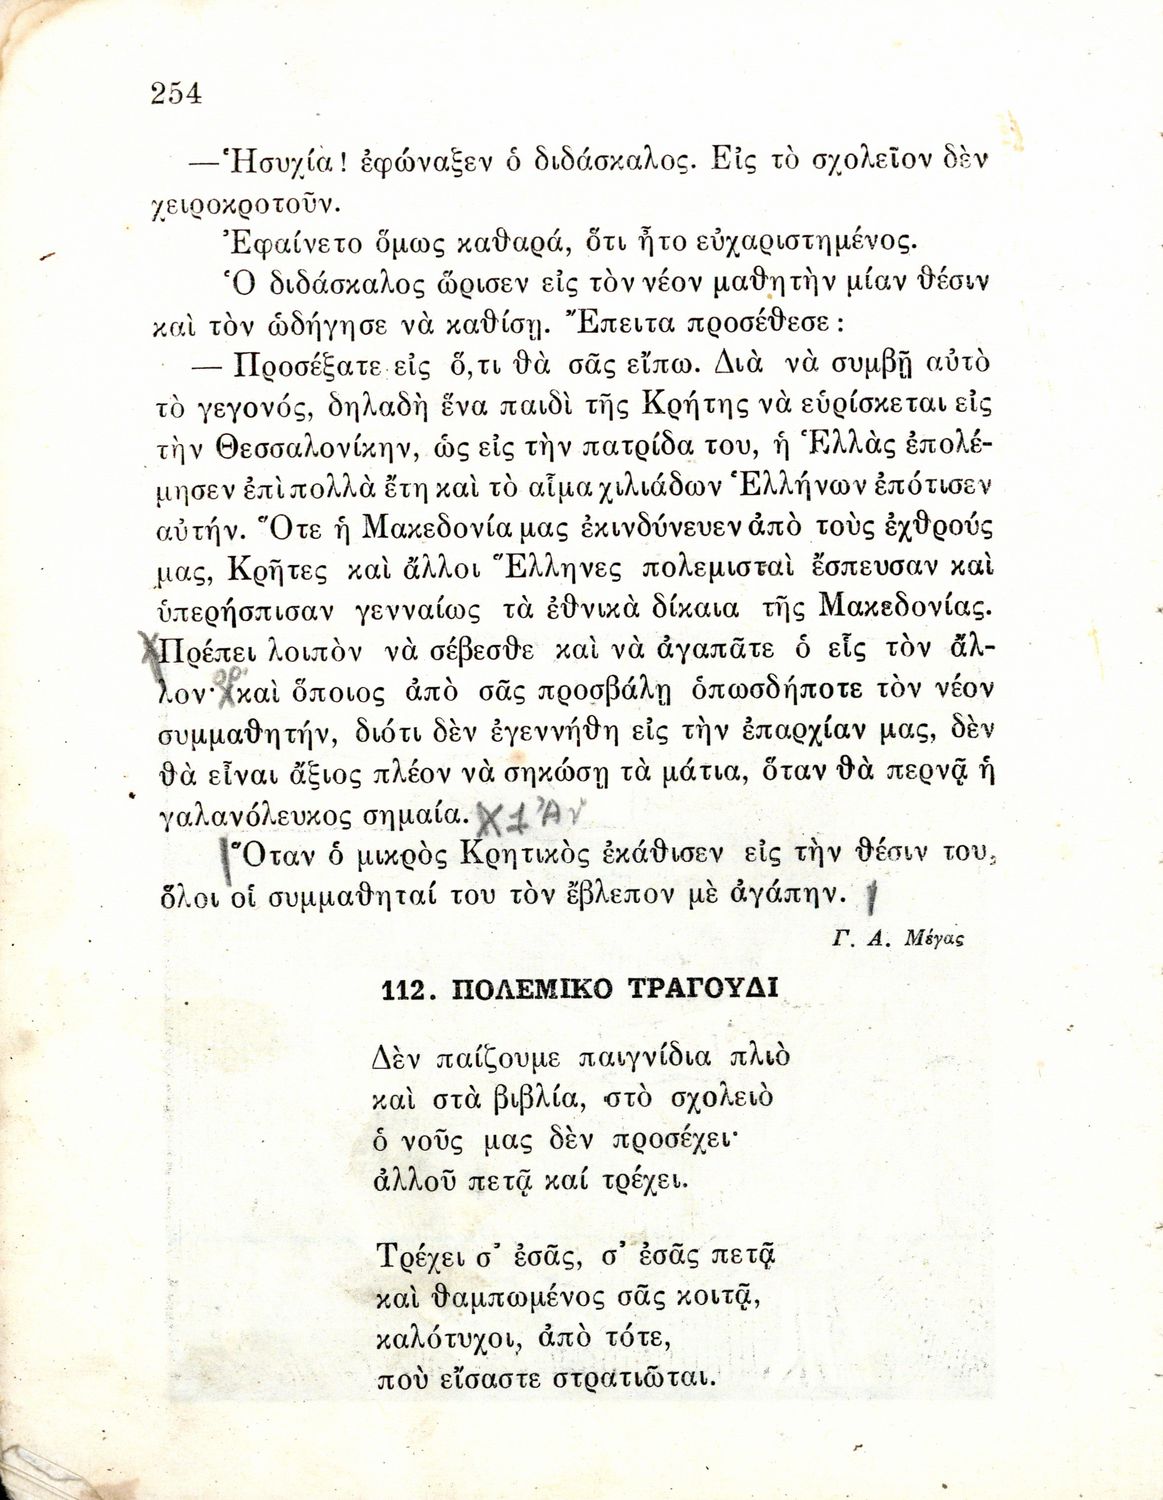 254
—Ἡσυχία! ἐφώναξεν ὁ διδάσκαλος. Εἰς τὸ σχολεῖον δὲν
χειροκροτοῦν.
Ἐφαίνετο ὅμως καθαρά, ὅτι ἦτο εὐχαριστημένος.
Ὁ διδάσκαλος ὥρισεν εἰς τὸν νέον μαθητὴν μίαν θέσιν
καὶ τὸν ὡδήγησε νὰ καθίσῃ. Ἔπειτα προσέθεσε:
— Προσέξατε εἰς ὅ,τι θὰ σᾶς εἴπω. Διὰ νὰ συμβῇ αὐτὸ
τὸ γεγονός, δηλαδὴ ἕνα παιδὶ τῆς Κρήτης νὰ εὑρίσκεται εἰς
τὴν Θεσσαλονίκην, ὡς εἰς τὴν πατρίδα του, ἡ Ἑλλὰς ἐπολέ-
μησεν ἐπὶ πολλὰ ἔτη καὶ τὸ αἷμα χιλιάδων Ἑλλήνων ἐπότισεν
αὐτήν. Ὅτε ἡ Μακεδονία μας ἐκινδύνευεν ἀπὸ τοὺς ἐχθρούς
μας, Κρῆτες καὶ ἄλλοι Ἕλληνες πολεμισταὶ ἔσπευσαν καὶ
ὑπερήσπισαν γενναίως τὰ ἐθνικὰ δίκαια τῆς Μακεδονίας.
Πρέπει λοιπὸν νὰ σέβεσθε καὶ νὰ ἀγαπᾶτε ὁ εἷς τὸν ἄλ-
λον· καὶ ὅποιος ἀπὸ σᾶς προσβάλῃ ὁπωσδήποτε τὸν νέον
συμμαθητήν, διότι δὲν ἐγεννήθη εἰς τὴν ἐπαρχίαν μας, δὲν
θὰ εἶναι ἄξιος πλέον νὰ σηκώσῃ τὰ μάτια, ὅταν θὰ περνᾷ ἡ
γαλανόλευκος σημαία. X 1
Ὅταν ὁ μικρὸς Κρητικὸς ἐκάθισεν εἰς τὴν θέσιν του,
ὅλοι οἱ συμμαθηταί του τὸν ἔβλεπον μὲ ἀγάπην.
Γ. Α. Μέγας
112. ΠΟΛΕΜΙΚΟ ΤΡΑΓΟΥΔΙ
Δὲν παίζουμε παιγνίδια πλιὸ
καὶ στὰ βιβλία, στὸ σχολειὸ
ὁ νοῦς μας δὲν προσέχει·
ἀλλοῦ πετᾷ καί τρέχει.
Τρέχει σ’ ἐσᾶς, σ’ ἐσᾶς πετᾷ
καὶ θαμπωμένος σᾶς κοιτᾷ,
καλότυχοι, ἀπὸ τότε,
ποὺ εἴσαστε στρατιῶται.